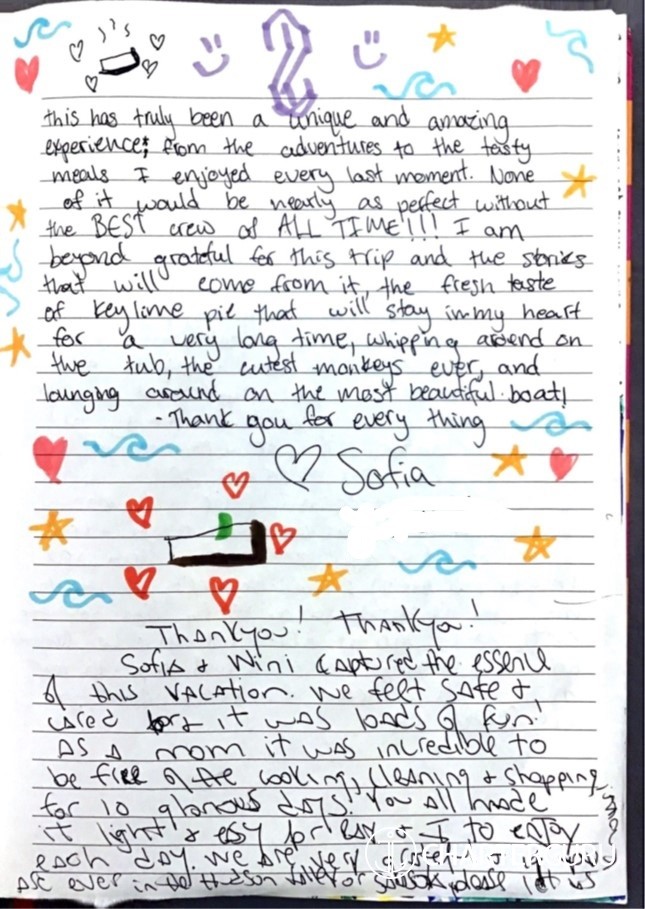 2
this has truly been a unique and amazing
experience; from the adventures to the tasty
meals I enjoyed every last moment. None
of it would be nearly as perfect without
the BEST crew of ALL TIME!!! I am
beyond grateful for this trip and the stories
that will come from it, the fresh taste
of keylime pie that will stay in my heart
for a very long time, whipping around on
the tub, the cutest monkeys ever, and
lounging around on the most beautiful boat!
- Thank you for every thing
♡ Sofia
Thankyou! Thankyou!
Sofia & Wini captured the essence
of this vacation. We felt safe &
cared for & it was loads of fun!
As a mom it was incredible to
be free of the cooking, cleaning & shopping
for 10 glorious days! You all made
it light & easy for & I to enjoy
each day. We are very
are ever in the Hudson Valley or please let us